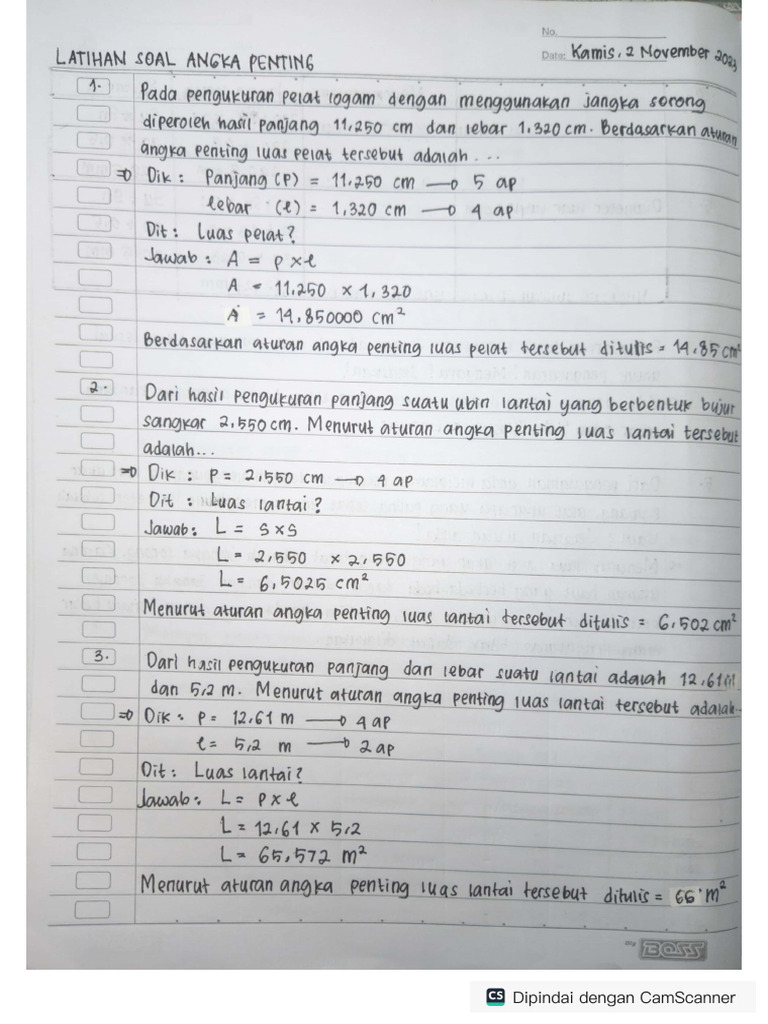 No.
LATIHAN SOAL ANGKA PENTING
Date: Kamis, 2 November 2023
1. Pada pengukuran pelat logam dengan menggunakan jangka sorong
diperoleh hasil panjang 11,250 cm dan lebar 1,320 cm. Berdasarkan aturan
angka penting luas pelat tersebut adalah ...
⇒ Dik : Panjang (P) = 11,250 cm → 5 ap
lebar (l) = 1,320 cm → 4 ap
Dit : Luas pelat?
Jawab : A = p x l
A = 11,250 x 1,320
A = 14,850000 cm²
Berdasarkan aturan angka penting luas pelat tersebut ditulis = 14,85 cm²
2. Dari hasil pengukuran panjang suatu ubin lantai yang berbentuk bujur
sangkar 2,550 cm. Menurut aturan angka penting luas lantai tersebut
adalah...
⇒ Dik : P = 2,550 cm → 4 ap
Dit : Luas lantai?
Jawab : L = S x S
L = 2,550 x 2,550
L = 6,5025 cm²
Menurut aturan angka penting luas lantai tersebut ditulis = 6,502 cm²
3. Dari hasil pengukuran panjang dan lebar suatu lantai adalah 12,61 m
dan 5,2 m. Menurut aturan angka penting luas lantai tersebut adalah..
⇒ Dik : P = 12,61 m → 4 ap
l = 5,2 m → 2 ap
Dit : Luas lantai?
Jawab : L = p x l
L = 12,61 x 5,2
L = 65,572 m²
Menurut aturan angka penting luas lantai tersebut ditulis = 66 m²
Big BOSS
CS Dipindai dengan CamScanner